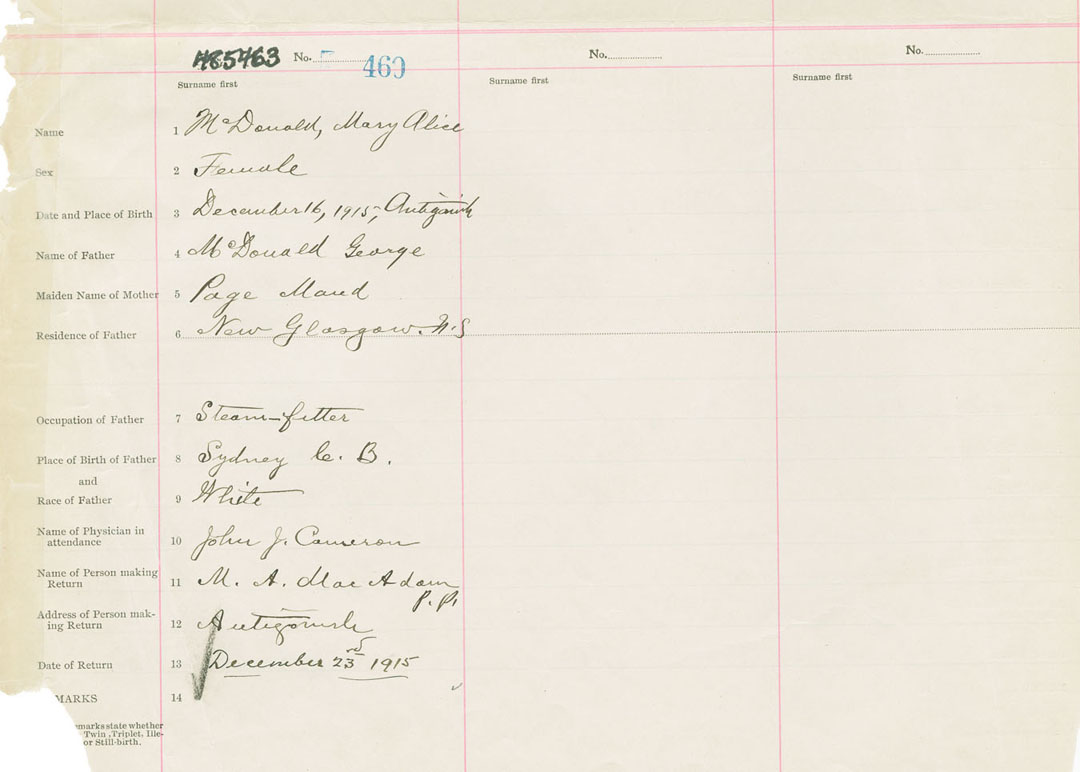 485463 No. 460 No. No.
Surname first Surname first Surname first
Name 1 McDonald, Mary Alice
Sex 2 Female
Date and Place of Birth 3 December 16, 1915, Antigonish
Name of Father 4 McDonald George
Maiden Name of Mother 5 Page Maud
Residence of Father 6 New Glasgow. N.S
Occupation of Father 7 Steam-fitter
Place of Birth of Father 8 Sydney C. B.
and
Race of Father 9 White
Name of Physician in
attendance 10 John J. Cameron
Name of Person making
Return 11 M. A. MacAdam
P.P.
Address of Person mak-
ing Return 12 Antigonish
Date of Return 13 December 23rd 1915
MARKS 14
emarks state whether
Twin, Triplet, Ille-
or Still-birth.